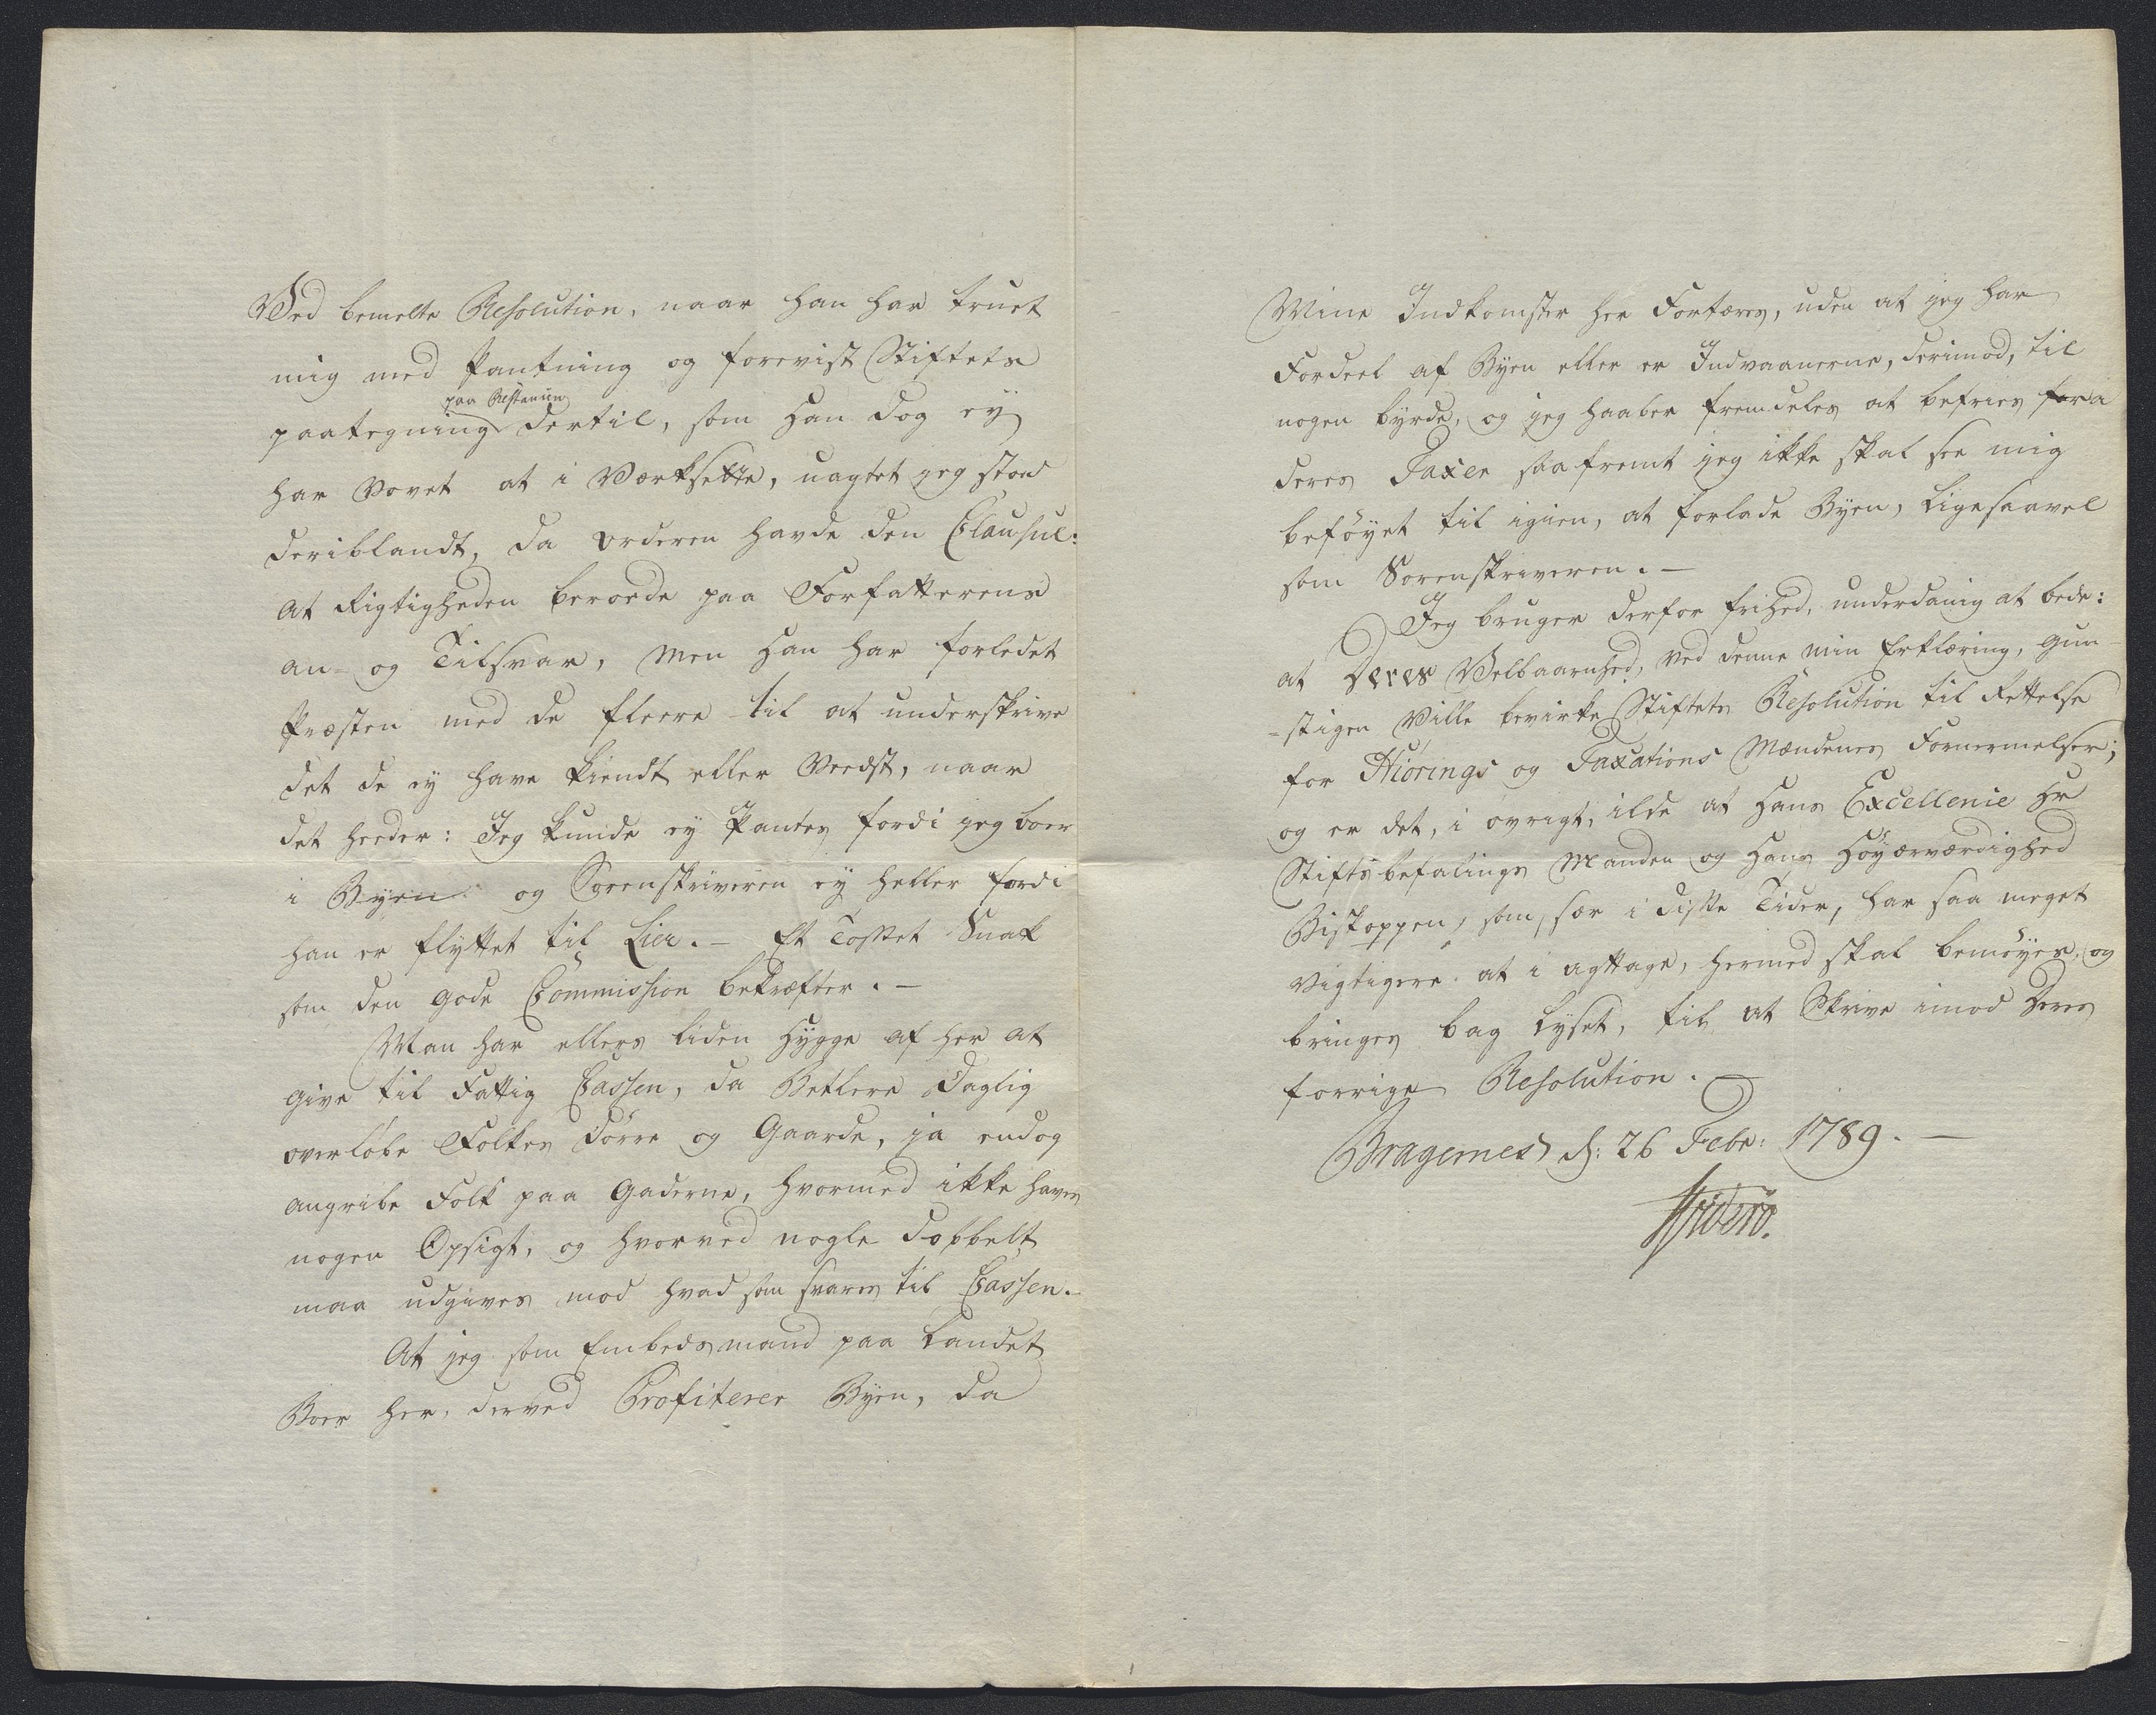 Ved bemelte Resolution, naar han har truet
mig med Pantning og forevist Stiftets
paa Restancen
paategning dertil, som han dog ey
har vovet at i Værksette, uagtet jeg stod
deriblandt, da ordren havde den Clausul:
At Rigtigheden beroede paa Forfatterens
an- og Tilsvar, men han har forledet
Præsten med de fleere til at underskrive
det de ey have kiendt eller Veedst, naar
det heeder: Jeg kunde ey Pantes fordi jeg boer
i Byen og Sorenskriveren ey heller fordi
han er flyttet til Lier. - Et Tosset Snak
som den gode Commission bekræfter. -
Man har ellers liden Hygge af her at
give til Fattig Cassen, da Betlere daglig
overløbe Folkes Dørre og Gaarde, ja endog
angribe Folk paa Gaderne, hvormed ikke haves
nogen Opsigt, og hvorved nogle dobbelt
maa udgives mod hvad som svares til Cassen.
At jeg som Embedsmand paa Landet
Boer her, derved Profiterer Byen, da
Mine Indkomster her Fortæres, uden at jeg har
Fordeel af Byen eller er Indvaanerne, derimod, til
nogen byrde, og jeg haaber fremdeles at befries for
deres Taxer saafremt jeg ikke skal see mig
beføyet til igien, at forlade Byen, ligesaavel
som Sorenskriveren. -
Jeg bruger derfor frihed, underdanig at bede:
at Deres Velbaarnhed, ved denne min Erklæring, gun
=stigen Ville bevirke Stiftets Resolution til Rettelse
for Hiørings og Taxations Mændenes Fornermelser;
og er det, i øvrigt, ilde at Hans Excellence Hr
Stiftsbefalings Manden og Hans Høyærværdighed
Biskoppen, som, sær i disse Tider, har saa meget
vigtigere at i agttage, hermed skal bemøyes, og
bringes bag Lyset, til at Skrive imod Deres
forrige Resolution. -
Bragernes d: 26 Febr: 1789. -